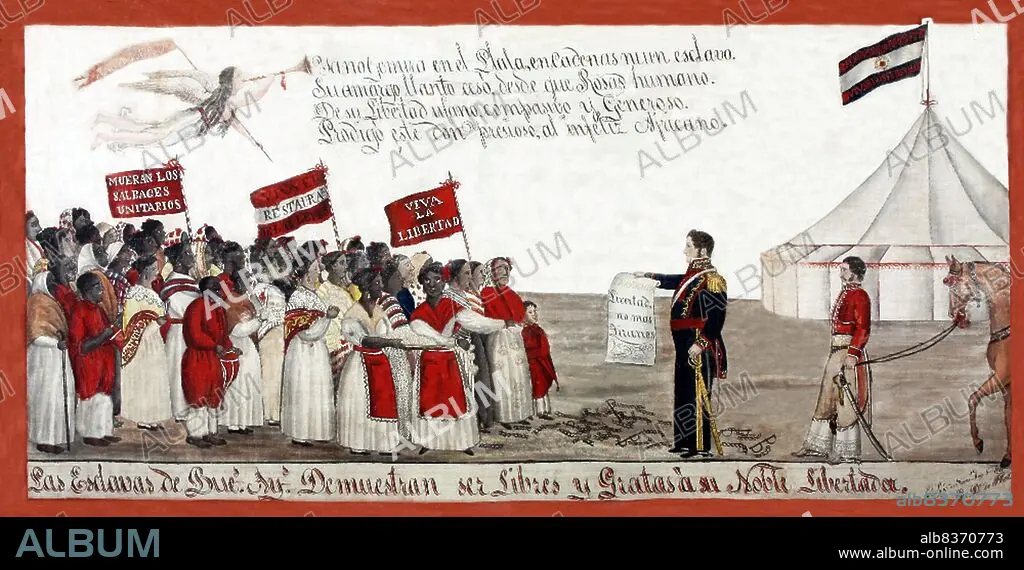 Ya no gemira en el Plata, en cadenas ni un esclavo.
Su amargo llanto ceso, desde que Rosas humano.
De su Libertad ufano, compasibo y Generoso.
Prodigó este don presioso, al infeliz Africano.
MUERAN LOS
SALBAGES
UNITARIOS
VIVA EL
RESTAURADOR
VIVA
LA
LIBERTAD
Libertad,
no mas
tiranos
Las Esclavas de Bueˢ. Ayˢ. Demuestran ser Libres y Gratas à su Noble Libertador.
alb8370773
ALBUM
alb8370773
www.album-online.com